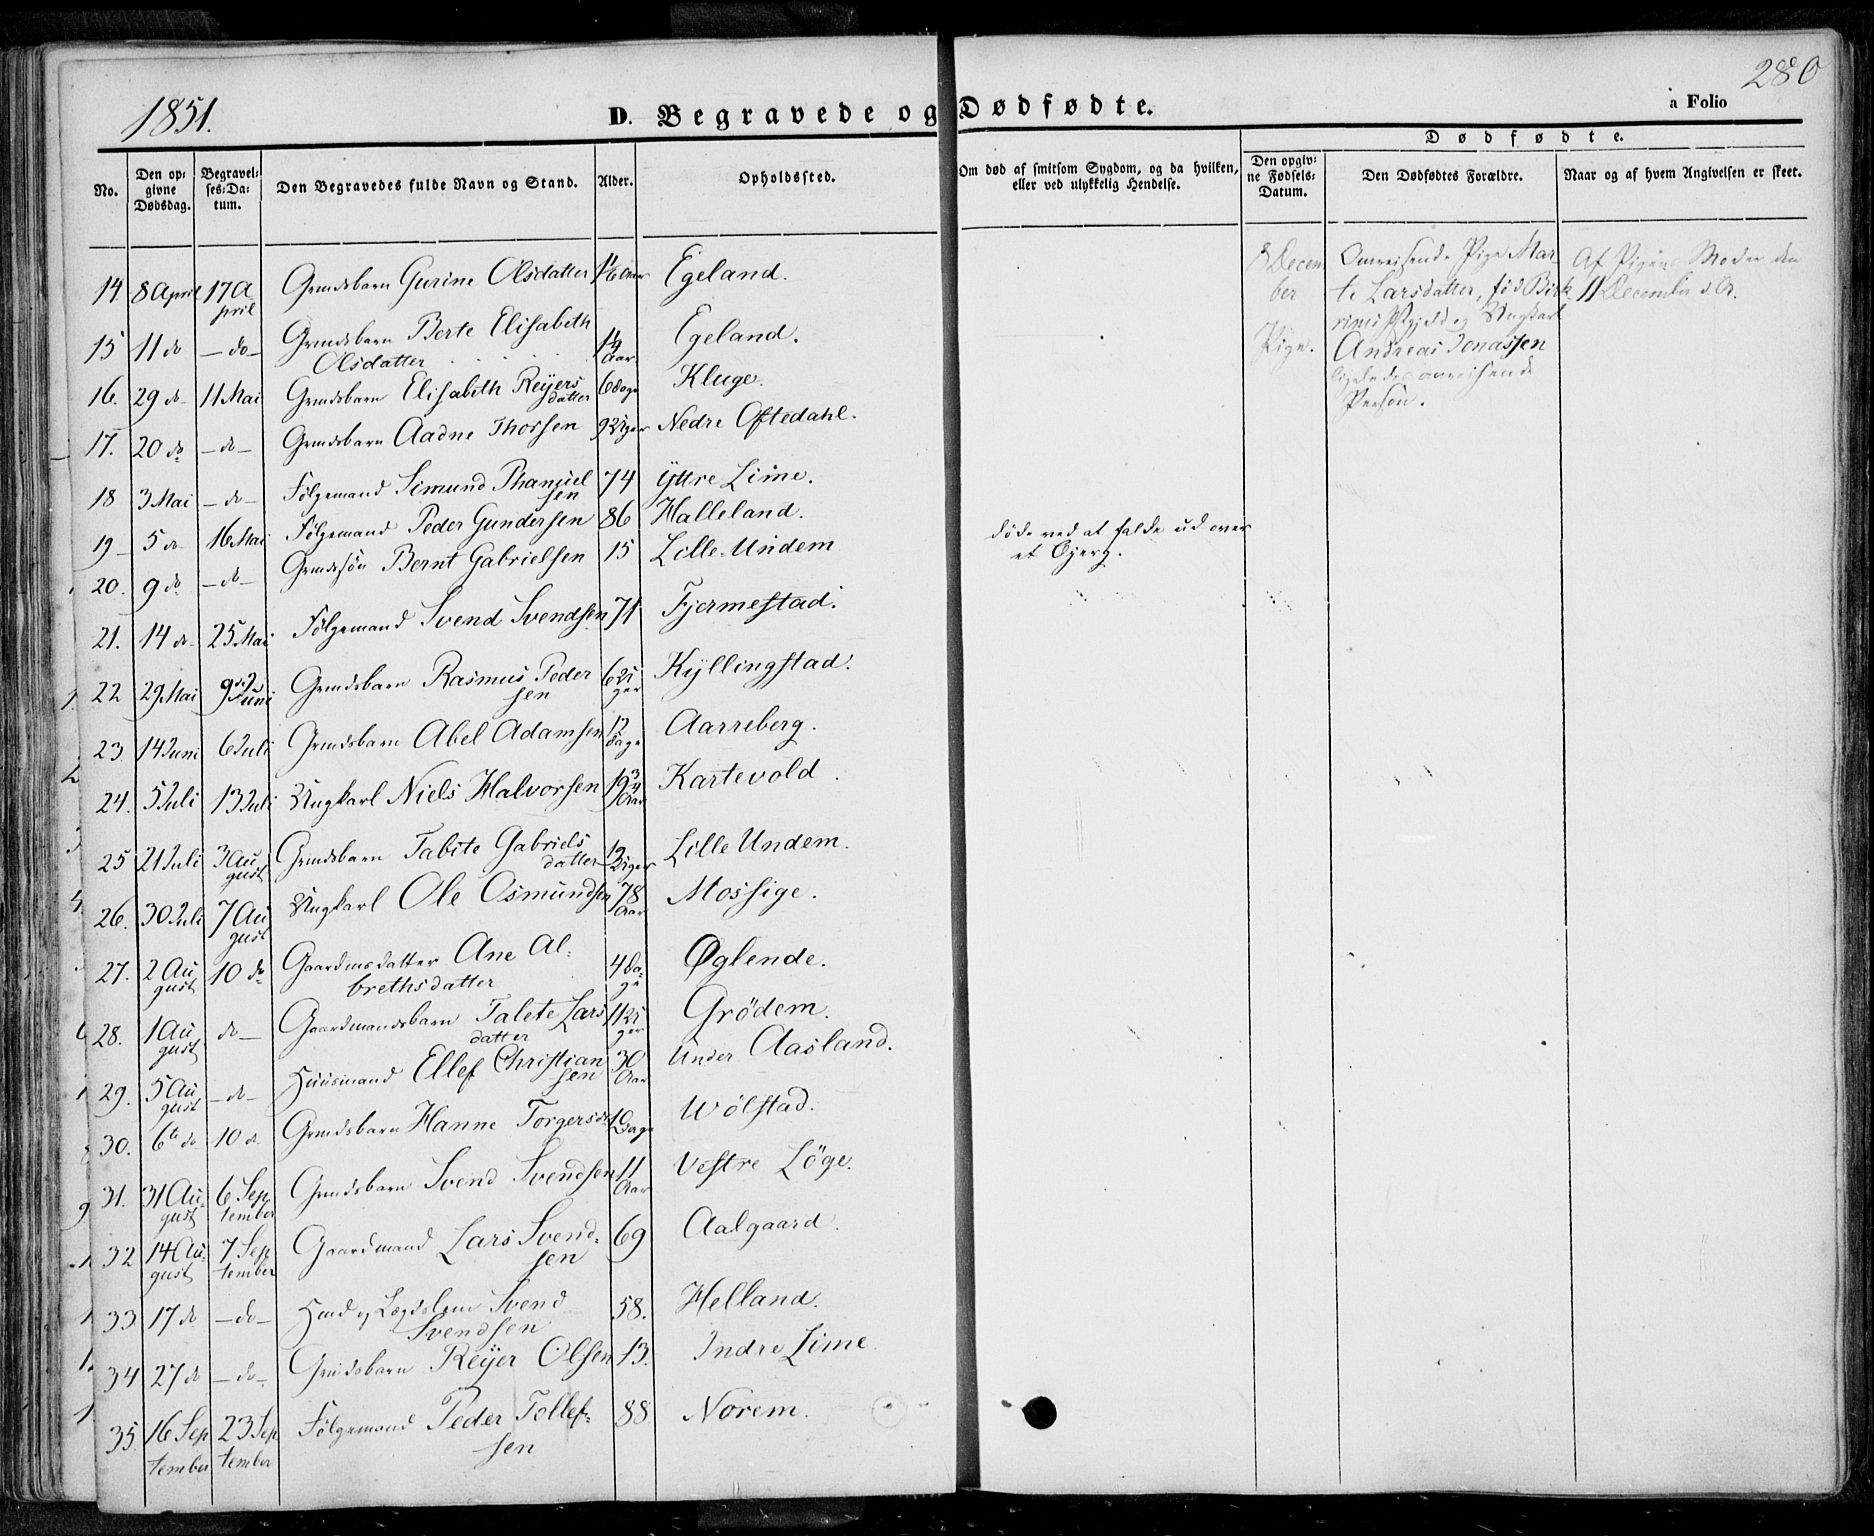 1851.
D. Begravede og Dødfødte.
a Folio 280
No.
Den opgivne Dødsdag.
Begravelses-Datum.
Den Begravedes fulde Navn og Stand.
Alder.
Opholdssted.
Om død af smitsom Sygdom, og da hvilken, eller ved ulykkelig Hendelse.
Dødfødte.
Den opgivne Fødsels-Datum.
Den Dødfødtes Forældre.
Naar og af hvem Angivelsen er skeet.
14. 8 April 17 April Grmdsbarn Gurine Olsdatter Egeland.
15 11 do - do - Grmdsbarn Berte Elisabeth Olsdatter Aar Egeland.
16. 29 do 11 Mai Grmdsbarn Elisabeth Reijersdatter 6 Dage Kluge.
17. 20 do - do - Grmdsbarn Aadne Thorsen 9 Uger Nedre Oftedahl.
18 3 Mai - do - Følgemand Simund Phanuelsen 74 Yttre Lime.
19 5 do 16 Mai Følgemand Peder Gundersen 86 Halleland.
20. 9 do - do - Grmdssøn Bernt Gabrielsen 15 Lille Undem døde ved at falde ud over et Bjerg.
21. 14 do 25 Mai Følgemand Svend Svendsen 71 Fjermestad.
22 29 Mai 9de Juni Grmdsbarn Rasmus Pedersen 6 Uger Kyllingstad.
23 14 Juni 6 Juli Grmdsbarn Abel Adamsen 12 Dage Aarreberg.
24. 5 Juli 13 Juli Ungkarl Niels Halvorsen 19 3/4 Aar Kartevold.
25 21 Juli 3 August Grmdsbarn Tabite Gabrielsdatter 12 Uger Lille Undem.
26. 30 Juli 7 August Ungkarl Ole Osmundsen 78 Aar Mossige.
27. 2 August 10 do Gaardmsdatter Ane Albrethsdatter 4 Dage Øglende.
28. 1 August do - Gaardmandsbarn Talete Larsdatter 11 Uger Grödem.
29. 5 August - do - Huusmand Ellef Christiansen 30 Aar Under Aasland.
30. 6te do 10 do Grmdsbarn Hanne Torgersd. Dage Wölstad.
31. 31 August 6 September Grmdsbarn Svend Svendsen 11 Aar Vestre Löge.
32 14 August 7 September Gaardmand Lars Svendsen 69 Aalgaard.
33 17 do - do - Hmd og Lægdslem Svend Svendsen 58. Helland.
34 27 do - do - Grmdsbarn Reijer Olsen 13. Indre Lime.
35. 16 September 23 September Følgemand Peder Tollefsen 88 Norem.
8 December Pige.
Omreisende Pige Marte Larsdatter, fød Birkrims Pgjeld og Ungkarl Andreas Jonassen ligeledes omreisende Person.
Af Pigens Moder den 11 December d. A.